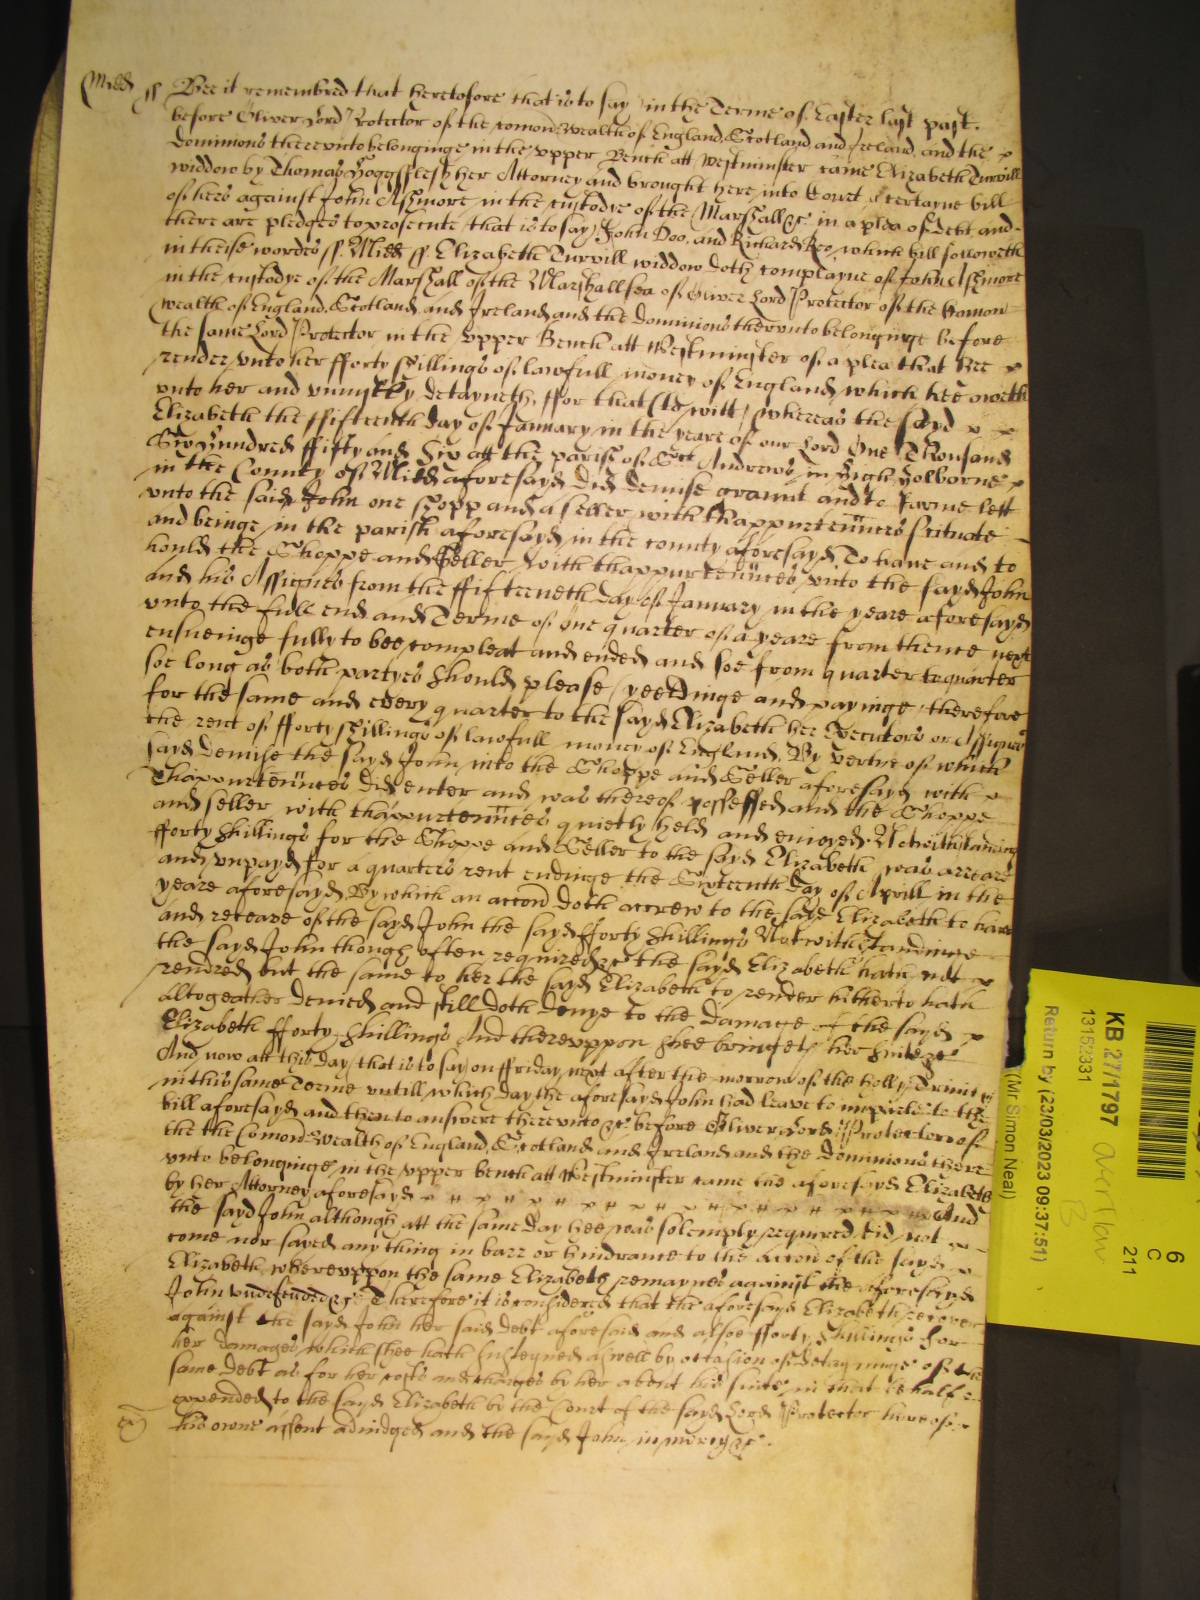 Midd ss Bee it remembred that heretofore that is to say in the Terme of Easter last past.
before Oliver Lord Protector of the comonwealth of England, Scotland and Ireland, and the
dominions thereunto belonginge in the upper Bench att Westminster came Elizabeth Turvill
widdow by Thomas Hoggsflesh her Attorney and brought here into Court a certayne bill
of hers against John Ashmore in the custodye of the Marshall &c in a plea of debt and
there are pledges to prosecute, that is to say, John Doo, and Richard Roo, which bill followeth
in theise wordes ss. Midd ss. Elizabeth Turvill widdow doth complayne of John Ashmore
in the custodye of the Marshall of the Marshallsea of Oliver Lord Protector of the Comon-
wealth of England, Scotland, and Ireland, and the dominions therunto belonginge before
the same Lord Protector in the upper Bench att Westminster of a plea that Hee
render unto her fforty shillings of lawfull money of England, which hee oweth
unto her and uniustly detayneth, ffor that (to witt) whereas the sayd
Elizabeth the ffifteenth day of January in the yeare of our Lord One Thousand
Six Hundred ffifty and Six att the parish of St Andrews in High Holborne
in the County of Midd aforesayd did demise graunt and to Farme lett
unto the said John one shopp and a seller, with thappurtennces scituate
and beinge in the parish aforesayd in the county aforesayd To have and to
hould the Shoppe and Seller with thappurtennces unto the sayd John
and his Assignes from the ffifteeneth day of January in the yeare aforesayd
unto the full end and Terme of one quarter of a yeare from thence next
ensueinge fully to bee compleat and ended and soe from quarter to quarter
soe long as both partyes should please (yeeldinge and payinge) therefore
for the same and every quarter to the sayd Elizabeth her Executors or Assignes
the rent of fforty shillings of lawfull money of England, By vertue of which
sayd demise the sayd John into the Shoppe and Seller aforesayd with
Thappurtennces did enter and was thereof possessed and the Shoppe
and seller with thappurtennces quietly held and enioyed. Notwithstanding
fforty shillings for the Shoppe and Seller to the sayd Elizabeth was arreare
and unpayd for a quarters rent endinge the Sixteenth day of Aprill in the
yeare aforesayd, By which an accon doth accrew to the sayd Elizabeth to have
and receave of the sayd John the sayd fforty shillings Notwithstandinge
the sayd John though often required &c the sayd Elizabeth hath not
rendred but the same to her the sayd Elizabeth to render hitherto hath
altogeather denied and still doth denye to the damage of the sayd
Elizabeth fforty shillings And thereuppon shee bringeth her suite &c
And now att this day, that is to say, on ffriday next after the morrow of the holly Trinity
in this same Terme untill which day the aforesayd John had leave to imparle to the
bill aforesayd and then to answere thereunto &c before Oliver Lord Protector of
the the Comonwealth of England, Scotland and Ireland and the dominions there
unto belonginge in the upper bench att Westminster came the aforesayd Elizabeth
by her Attorney aforesayd And
the sayd John although att the same day hee was solemply required, did not
come nor sayed any thing in barr or hindrance to the accon of the sayd
Elizabeth, whereuppon the same Elizabeth remaynes against the aforesayd
John undefended &c Therefore it is considered that the aforesayd Elizabeth recover
against the sayd John her said debt aforesaid and alsoe fforty shillings for
her damages which shee hath susteyned aswell by occasion of detayninge of the
same debt as for her costs and charges by her about his suite in that behalfe
expended to the sayd Elizabeth by the Court of the sayd Lord Protector here of
his owne assent adiudged and the sayd John in mercy &c.
KB 27/1797
13152331
Return by (23/03/2023 09:37:51)
(Mr Simon Neal)
overflow
B
6
C
211